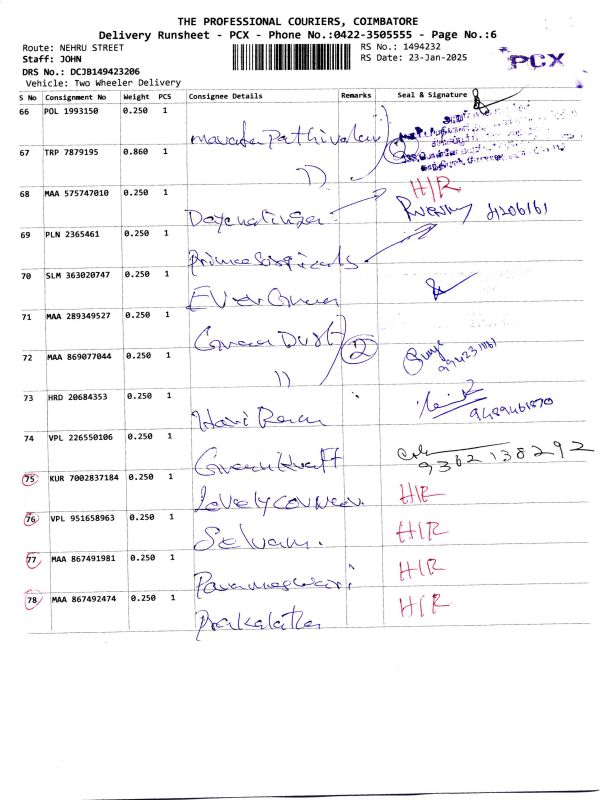 THE PROFESSIONAL COURIERS, COIMBATORE
Delivery Runsheet - PCX - Phone No.:0422-3505555 - Page No.:6
Route: NEHRU STREET RS No.: 1494232
Staff: JOHN RS Date: 23-Jan-2025
PCX
DRS No.: DCJB149423206
Vehicle: Two Wheeler Delivery
S No Consignment No Weight PCS Consignee Details Remarks Seal & Signature
66 POL 1993150 0.250 1
67 TRP 7879195 0.860 1 )) 2
68 MAA 575747010 0.250 1 H/R
69 PLN 2365461 0.250 1
70 SLM 363020747 0.250 1 Ever Green
71 MAA 289349527 0.250 1 Green Dust
72 MAA 869077044 0.250 1 )) 2
73 HRD 20684353 0.250 1 Hari Ram 9489461870
74 VPL 226550106 0.250 1 Green Kraft 9362138292
75 KUR 7002837184 0.250 1 H/R
76 VPL 951658963 0.250 1 Selvam. H/R
77 MAA 867491981 0.250 1 Parameswari H/R
78 MAA 867492474 0.250 1 H/R